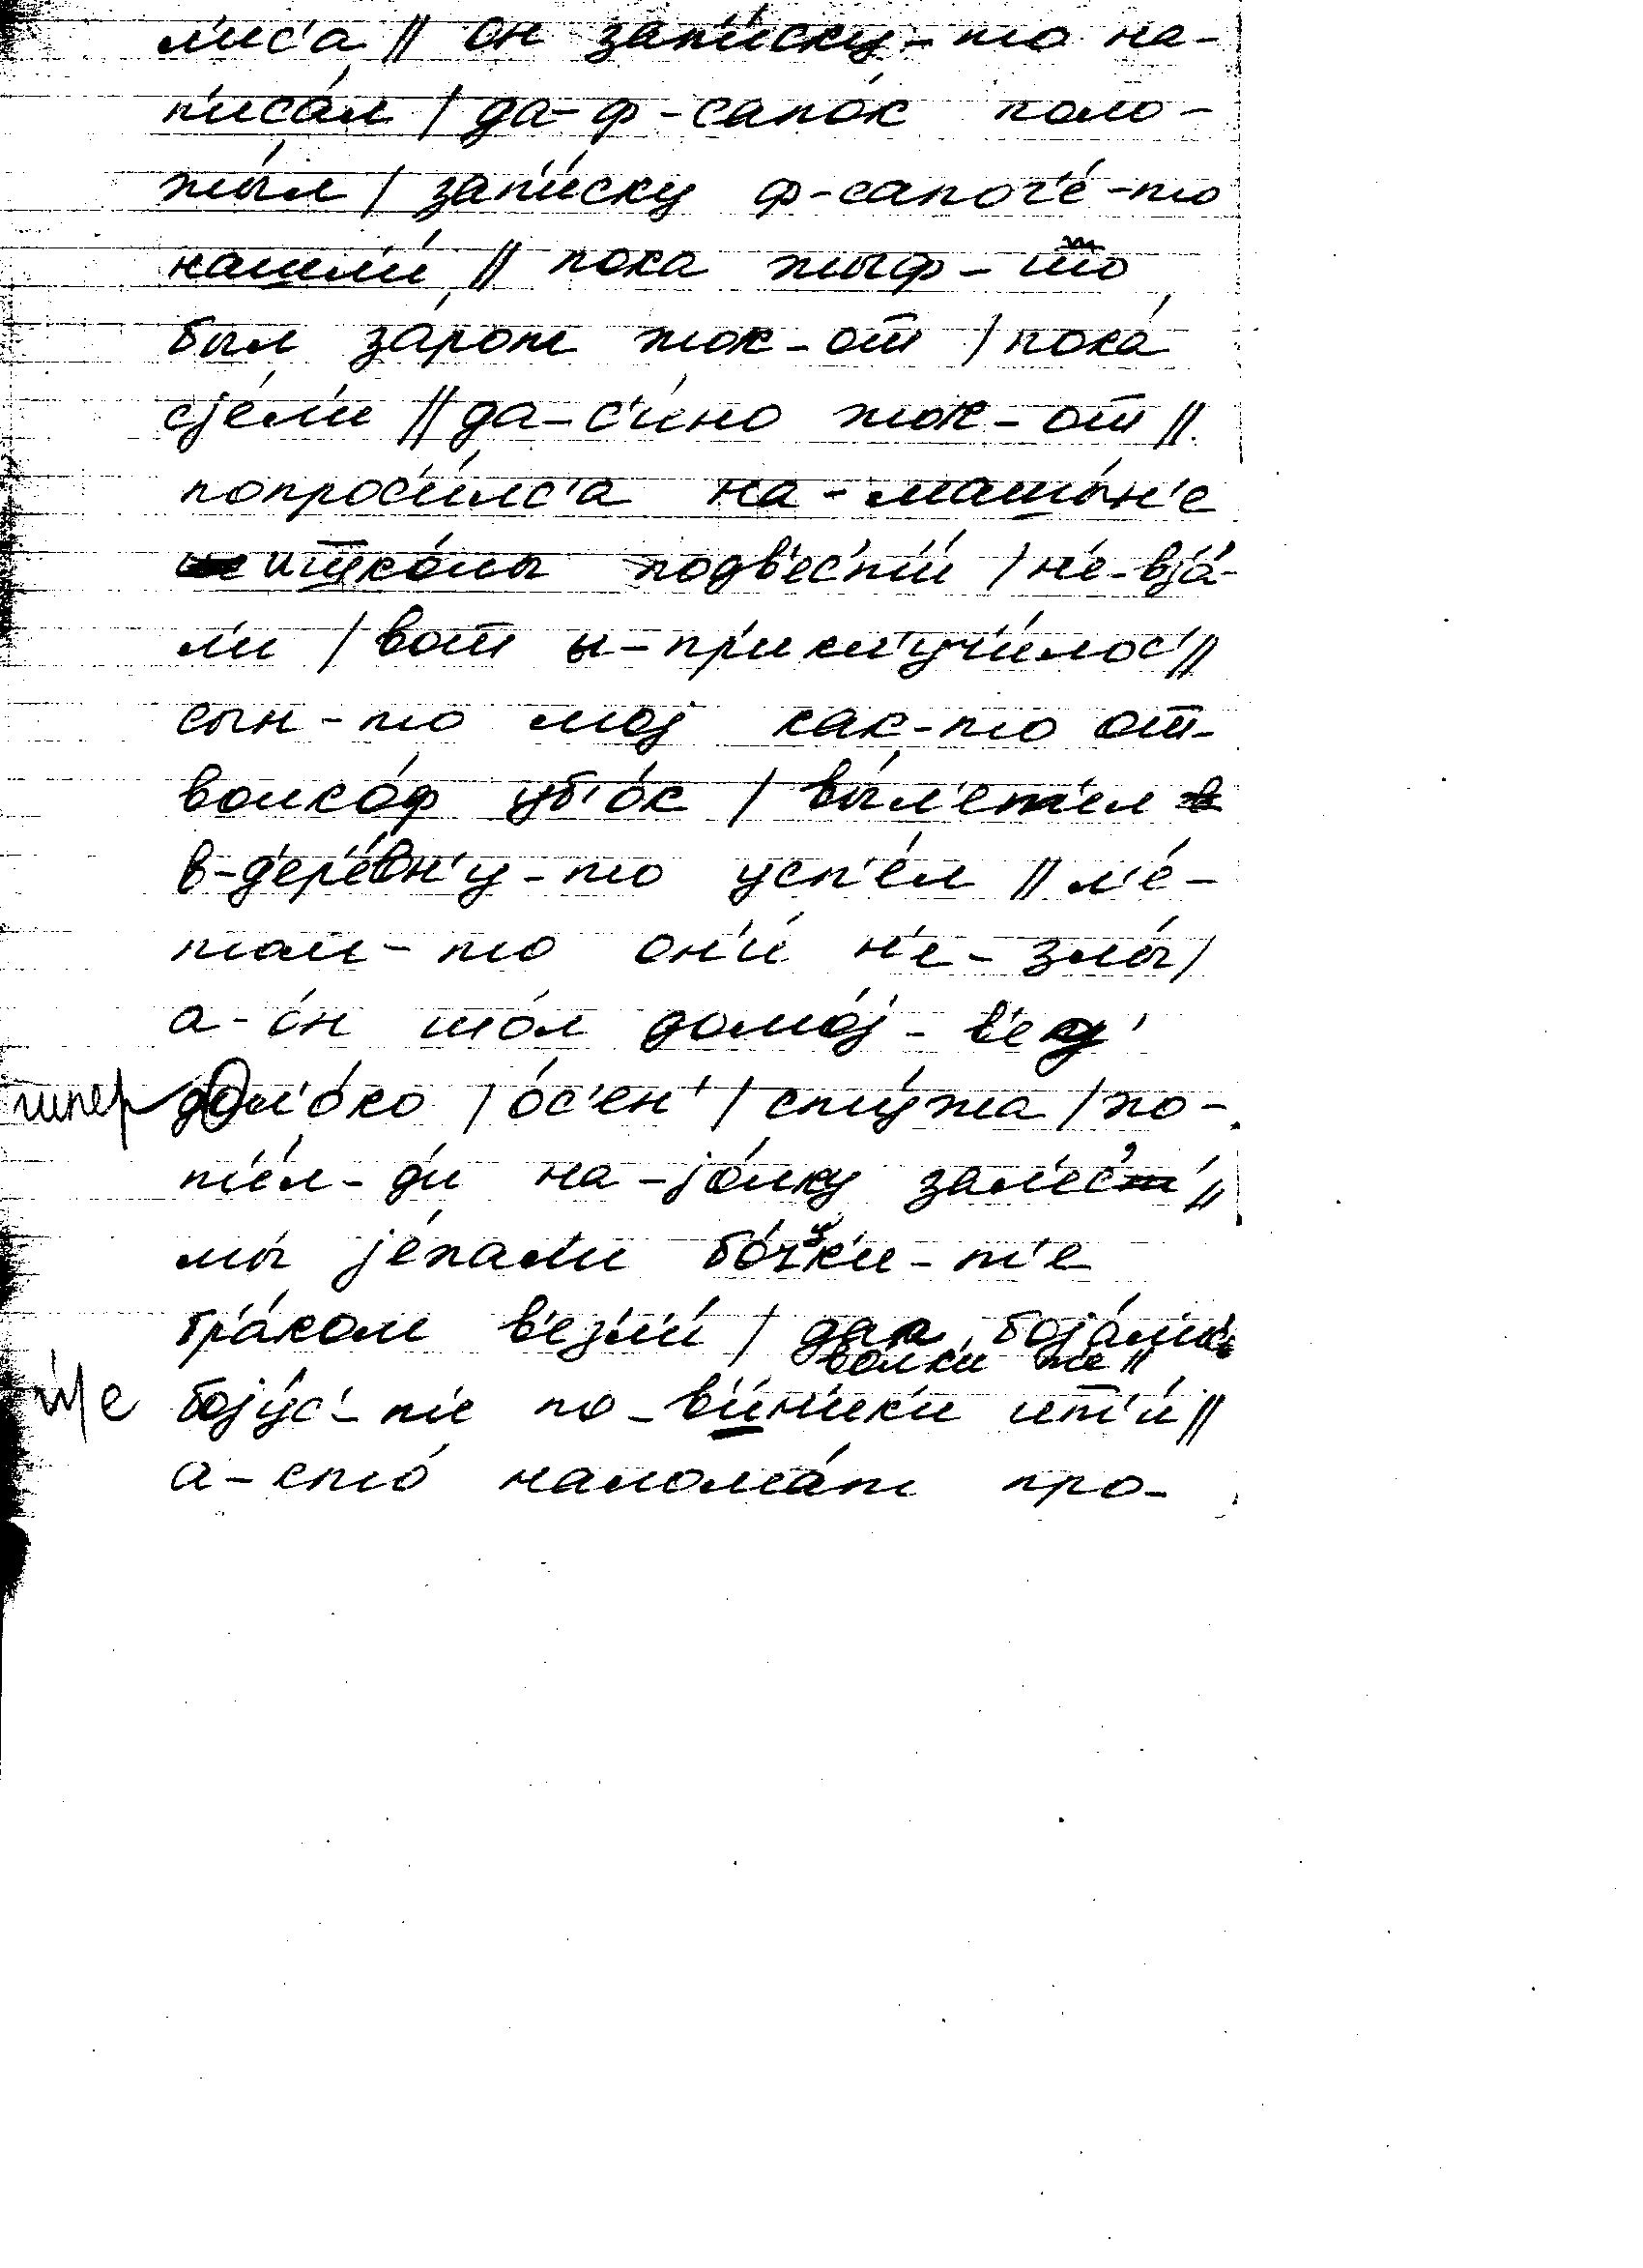 л'ис'а // он зап'и́ску-то на-
п'иса́л / да-ф-сапо́к поло-
жы́л / зап'и́ску ф-сапог'е́-то
нашл'и́ // пока жыф-то
был за́рот жок-от / пока́
сје́л'и // да-с'и́но жок-от //
попрос'и́лс'а на-машы́н'е
и шко́лы подв'ес'т'и́ / н'е-вз'а́-
л'и / вот и-пр'икл'уч'и́лос' //
сын-то мој как-то от-
волко́ф уб'о́к / вы́л'ет'ел
в-д'ер'е́вн'у-то усп'е́л // л'е́-
том-то он'и́ н'е-злы́ /
а-о́н шо́л домо́ј-в'ед'
дал'о́ко / о́с'ен' / сту́жа / хо-
т'е́л-ди на-јо́лку зал'е́с' //
мы је́хал'и бо́чк'и-т'е
бра́ком в'езл'и́ / дак боја́л'ис'
волки те //
боју́с'-т'е по-в'и́н'ик'и ит'т'и́ //
а-сто́ налома́т про-